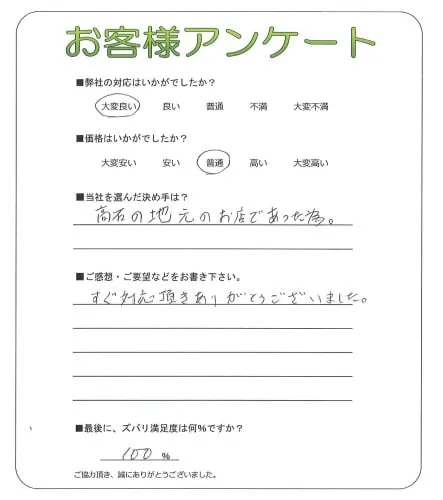 お客様アンケート
■弊社の対応はいかがでしたか？
大変良い 良い 普通 不満 大変不満
■価格はいかがでしたか？
大変安い 安い 普通 高い 大変高い
■当社を選んだ決め手は？
高石の地元のお店であった為。
■ご感想・ご要望などをお書き下さい。
すぐ対応頂きありがとうございました。
■最後に、ズバリ満足度は何%ですか？
100 %
ご協力頂き、誠にありがとうございました。